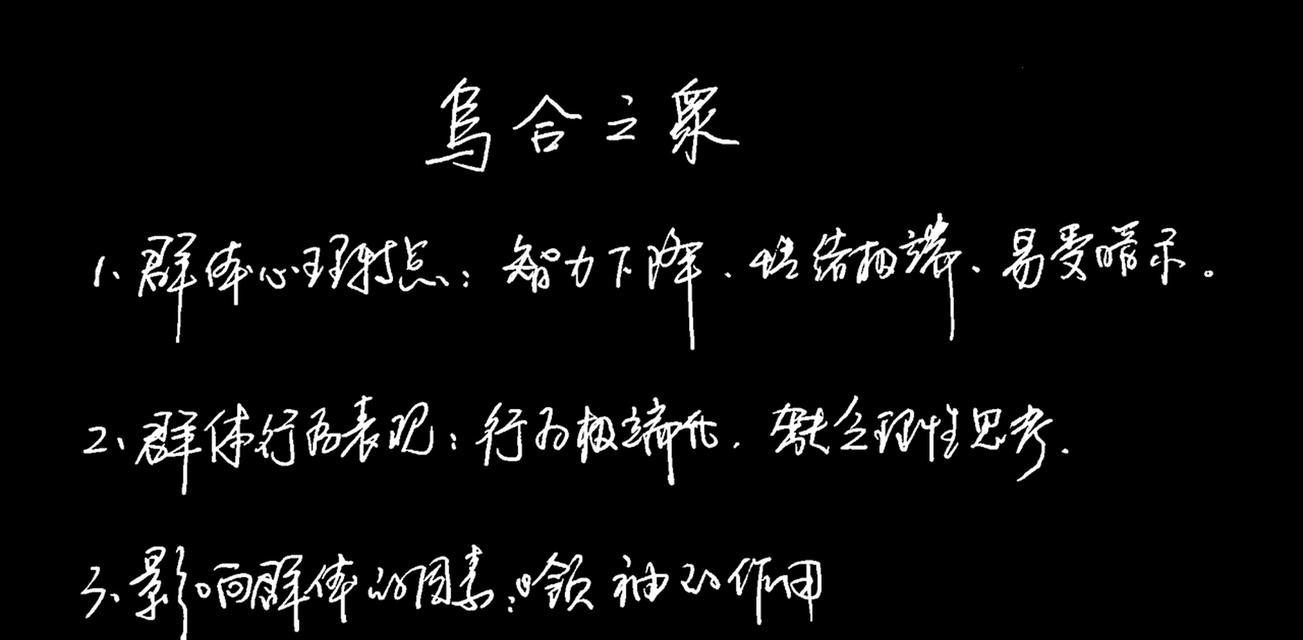 烏合之衆
1、群体心理特点：智力下降、情绪极端、易受暗示。
2、群体行为表现：行为极端化.缺乏理性思考.
3、影响群体的因素：领袖的作用